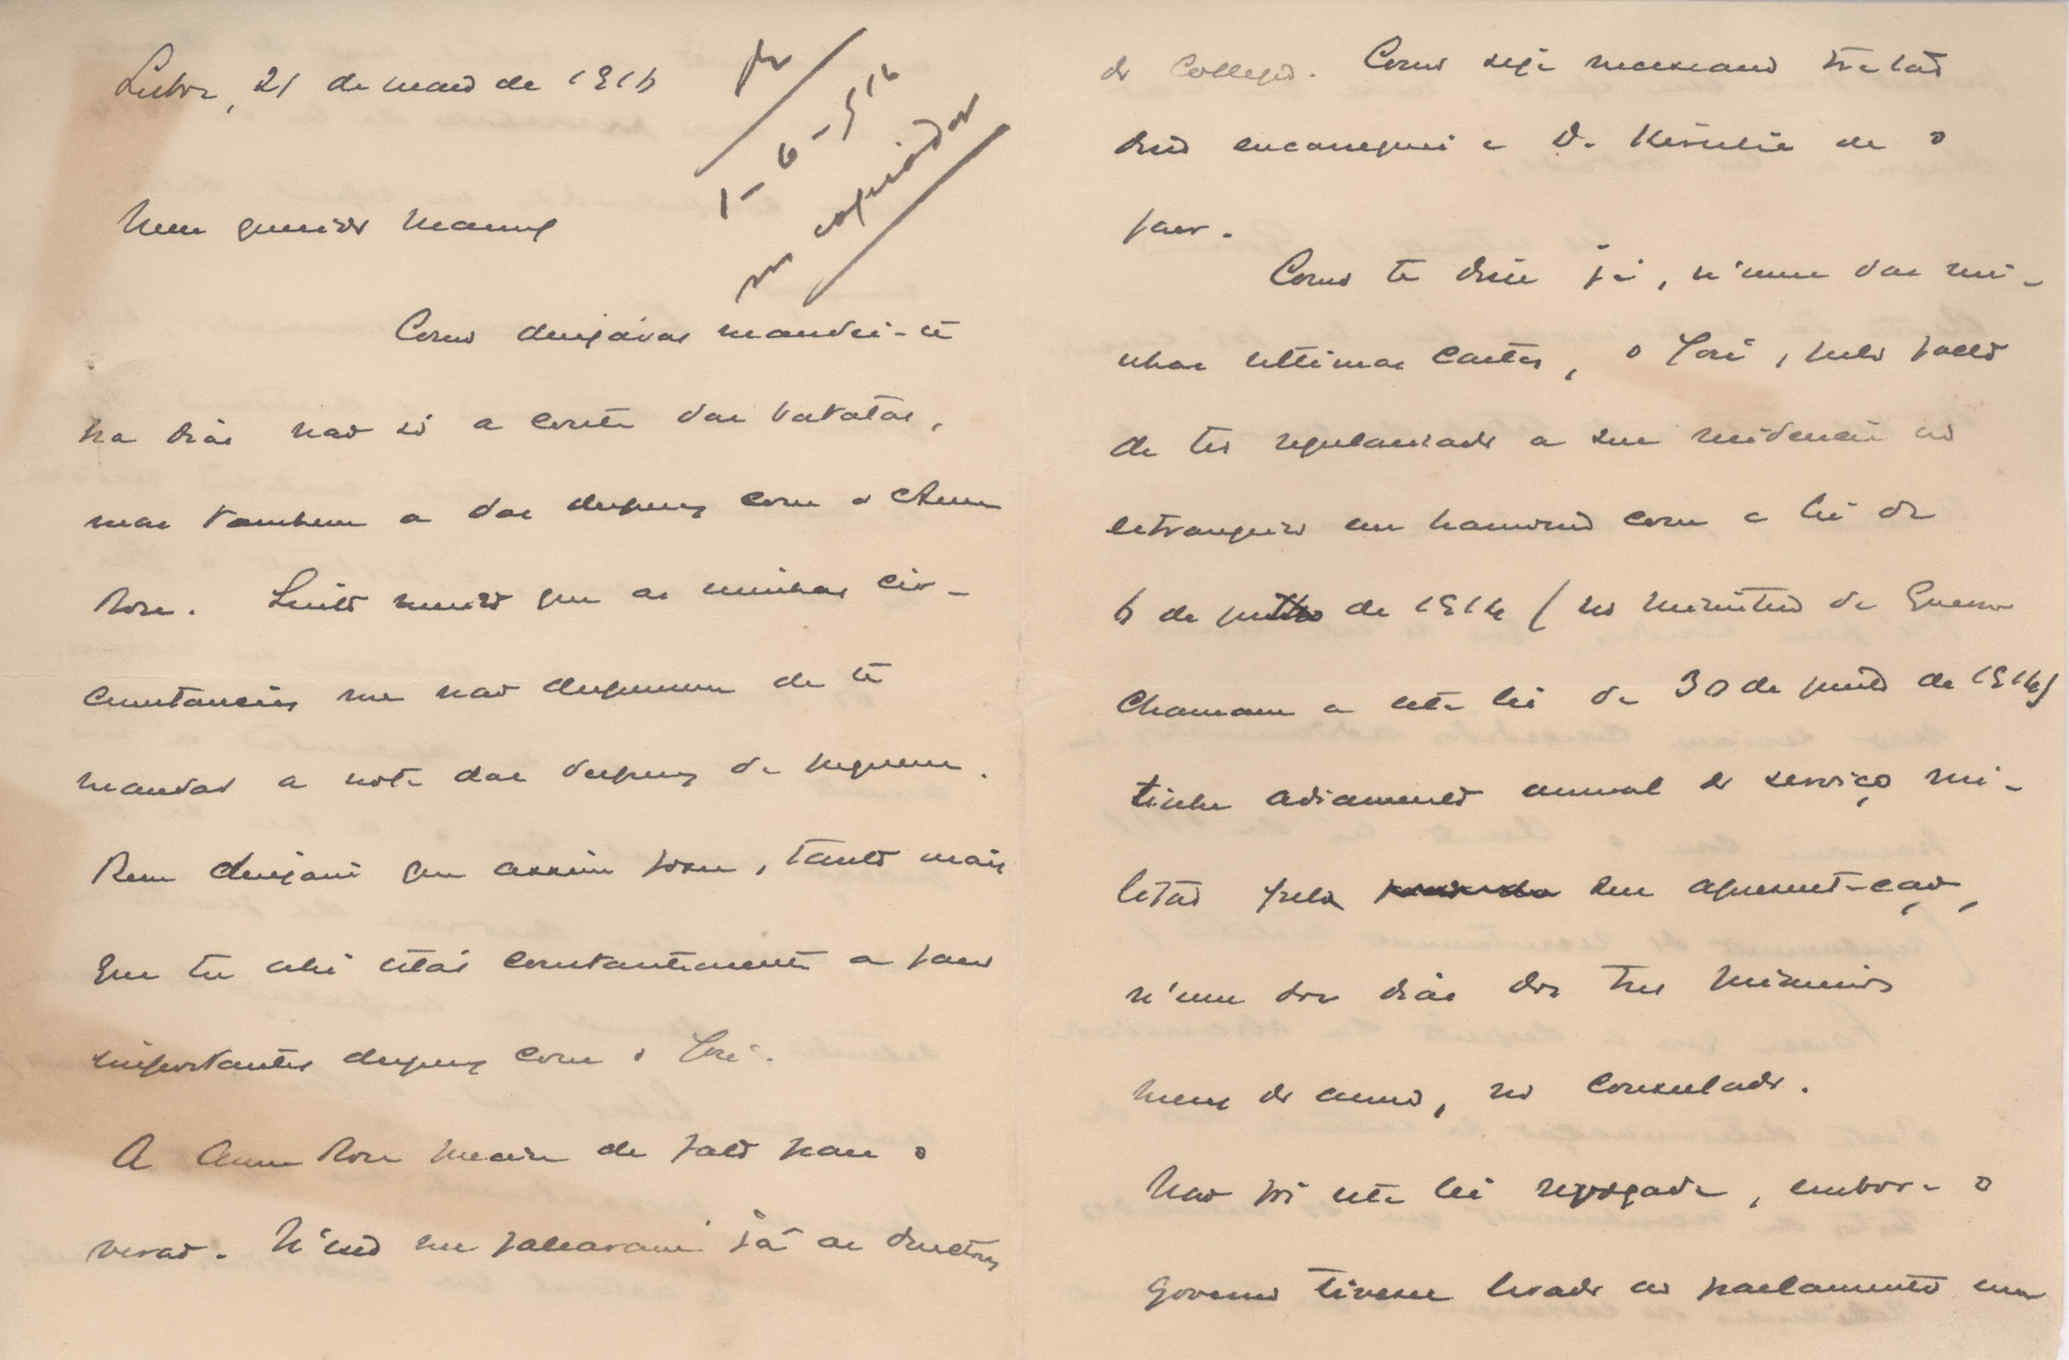 Lisboa, 21 de maio de 1916
1-6-916
no copiador
Meu querido Manuel
Como desejavas mandei-te
ha dias não só a conta das batatas,
mas tambem a das despezas com a Anna
Rosa. Sinto muito que as minhas cir-
cumstancias me não dispensem de te
mandar a nota das despezas da pequena.
Bem desejava que assim fosse, tanto mais
que tu ahi estás constantemente a fazer
importantes despezas com o José.
A Anna Rosa precisa de fato para o
verão. N'isso me fallaram já as directoras
do Collegio. Como seja necessario tratar
disso encarreguei a D. Hersilia de o
fazer.
Como te disse já, n'uma das mi-
nhas ultimas cartas, o José, pelo facto
de ter regularisado a sua residencia no
estrangeiro em harmonia com a lei de
6 de julho de 1914 (no Ministerio da Guerra
chamam a esta lei de 30 de junho de 1914)
tinha adiamento annual do serviço mi-
litar pela sua apresentação,
n'um dos dias dos tres primeiros
mezes do anno, no Consulado.
Não foi esta lei revogada, embora o
Governo tivesse levado ao parlamento uma